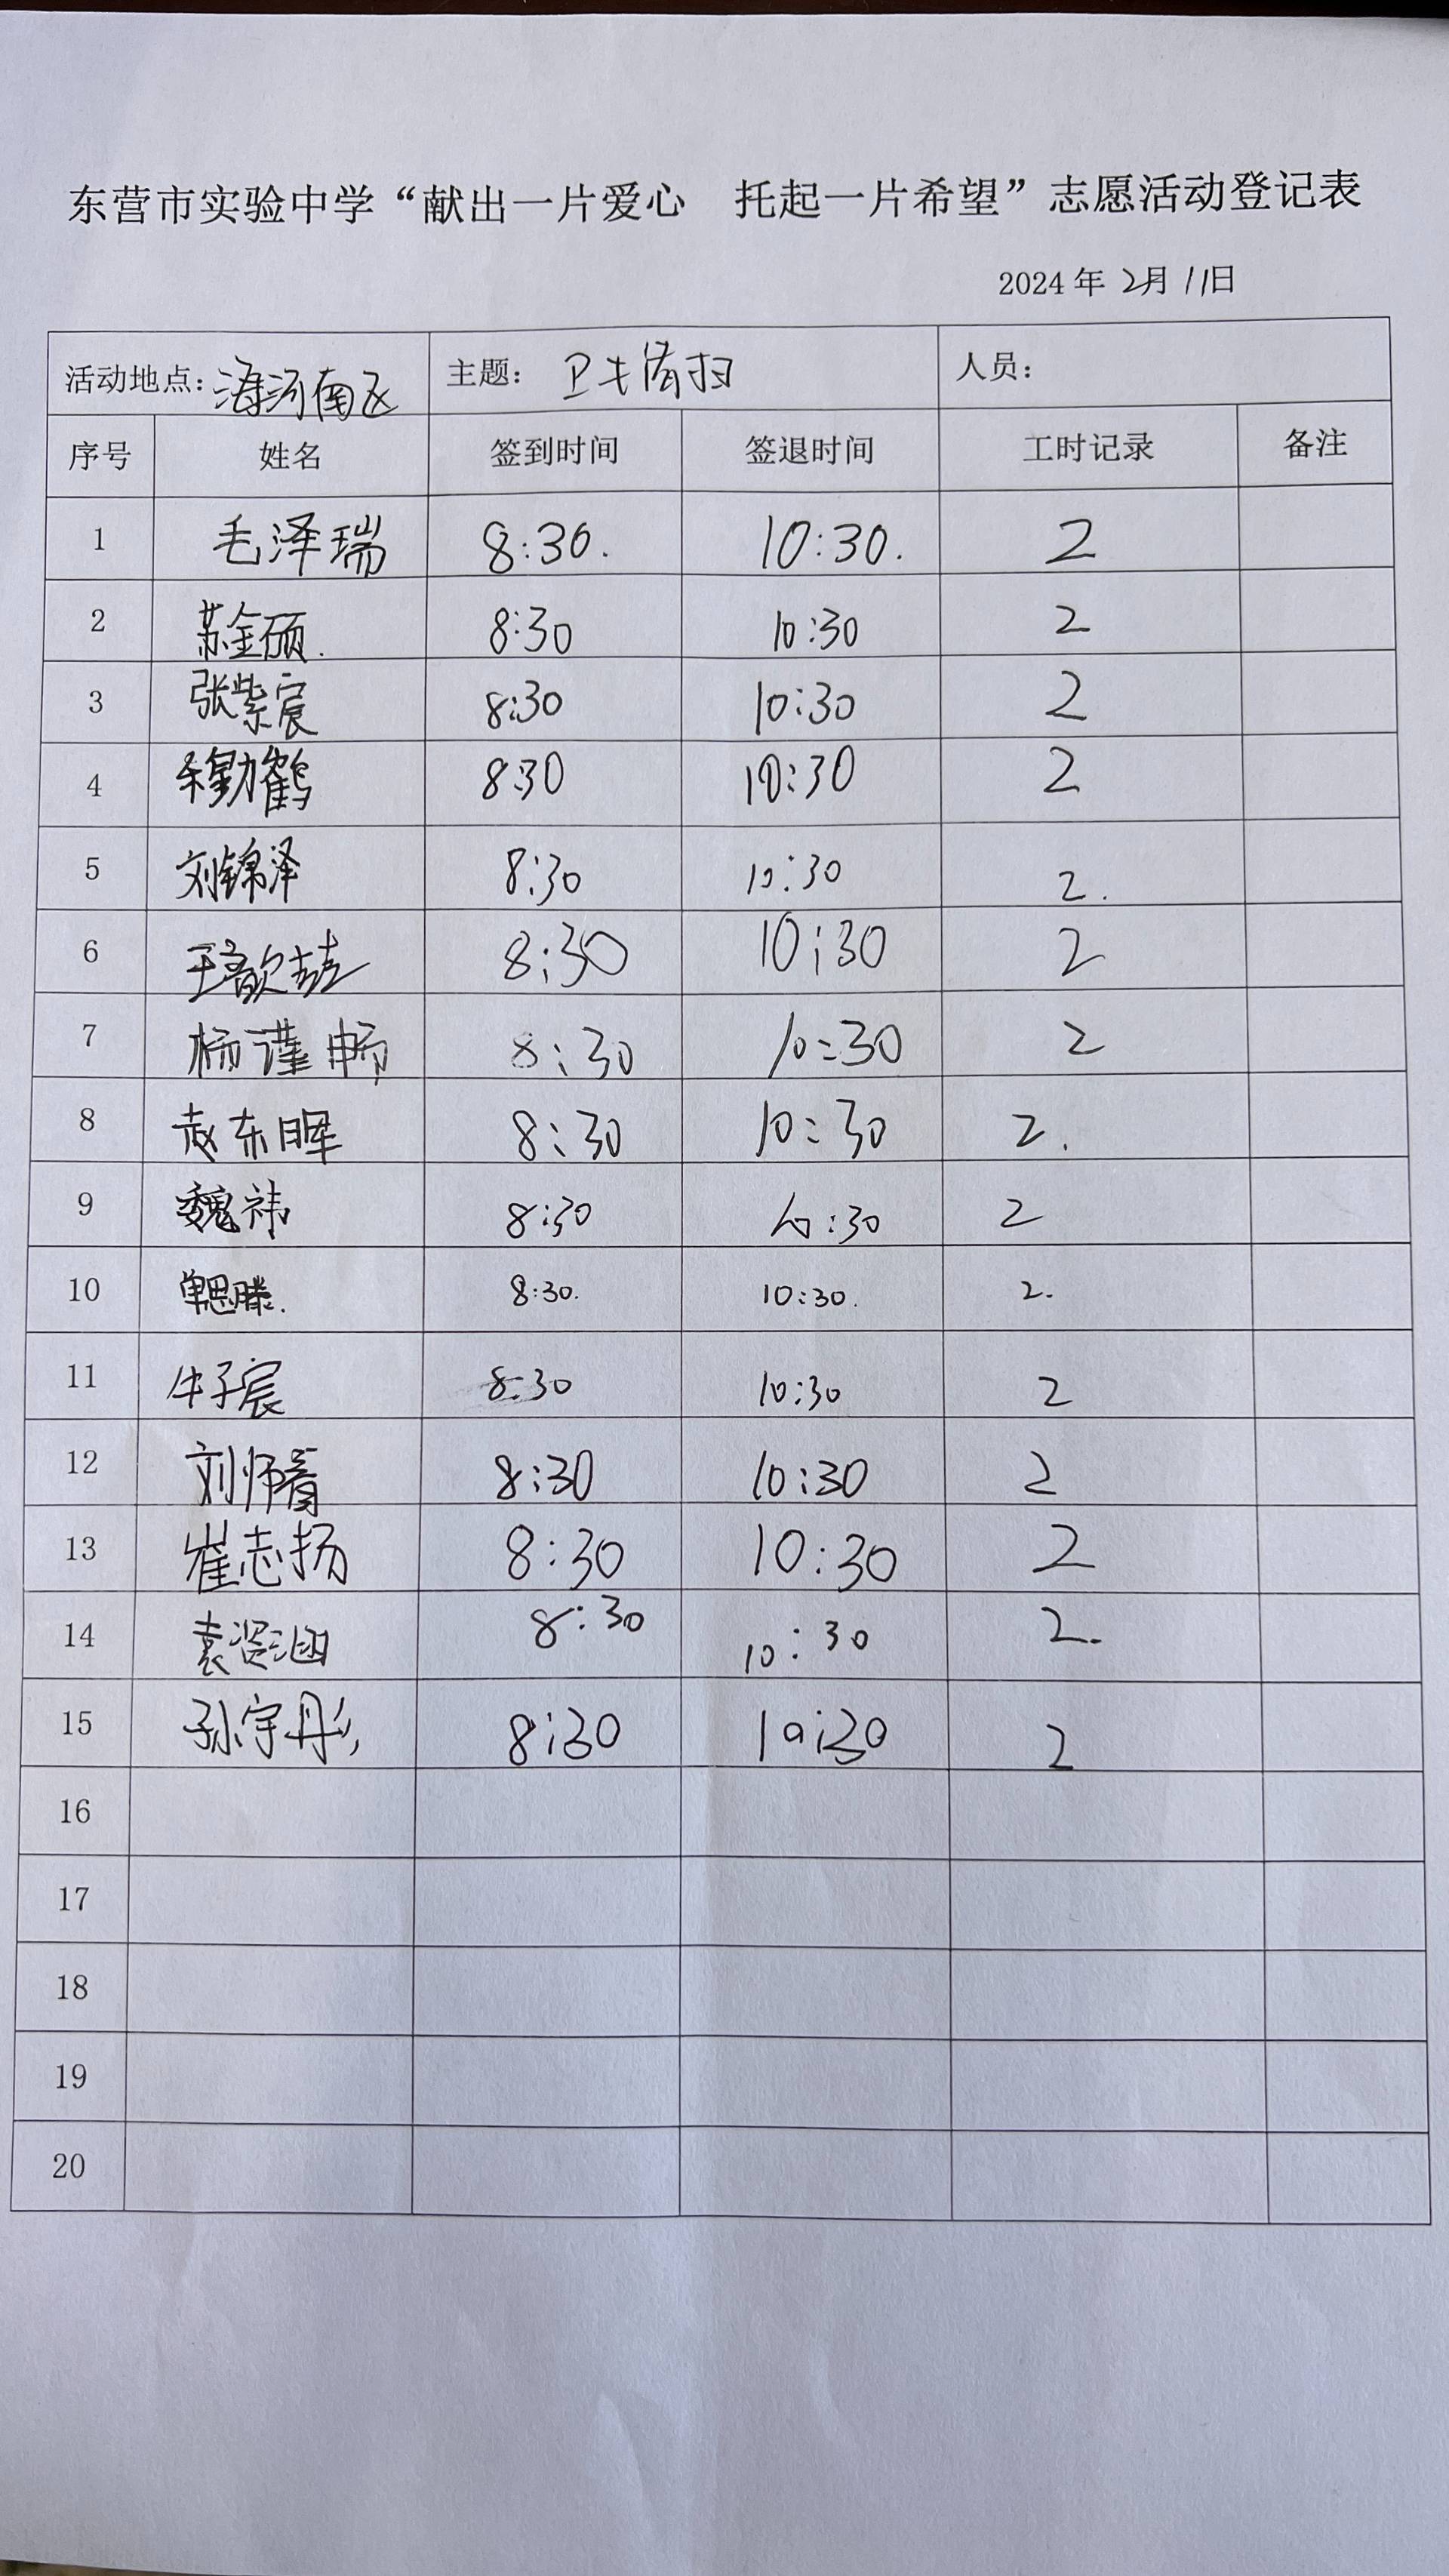 东营市实验中学“献出一片爱心　托起一片希望”志愿活动登记表
2024 年 2月 11日
活动地点: 海河南区 主题: 卫生清扫 人员:
序号 姓名 签到时间 签退时间 工时记录 备注
1 毛泽瑞 8:30. 10:30. 2
2 苏金硕. 8:30 10:30 2
3 张紫宸 8:30 10:30 2
4 8:30 10:30 2
5 刘锦泽 8:30 10:30 2.
6 王歆喆 8:30 10:30 2
7 杨谨畅 8:30 10:30 2
8 赵东晖 8:30 10:30 2.
9 魏祎 8:30 10:30 2
10 单思滕. 8:30. 10:30. 2.
11 牛子宸 8:30 10:30 2
12 8:30 10:30 2
13 崔志扬 8:30 10:30 2
14 8:30 10:30 2.
15 孙宇彤 8:30 10:30 2
16
17
18
19
20